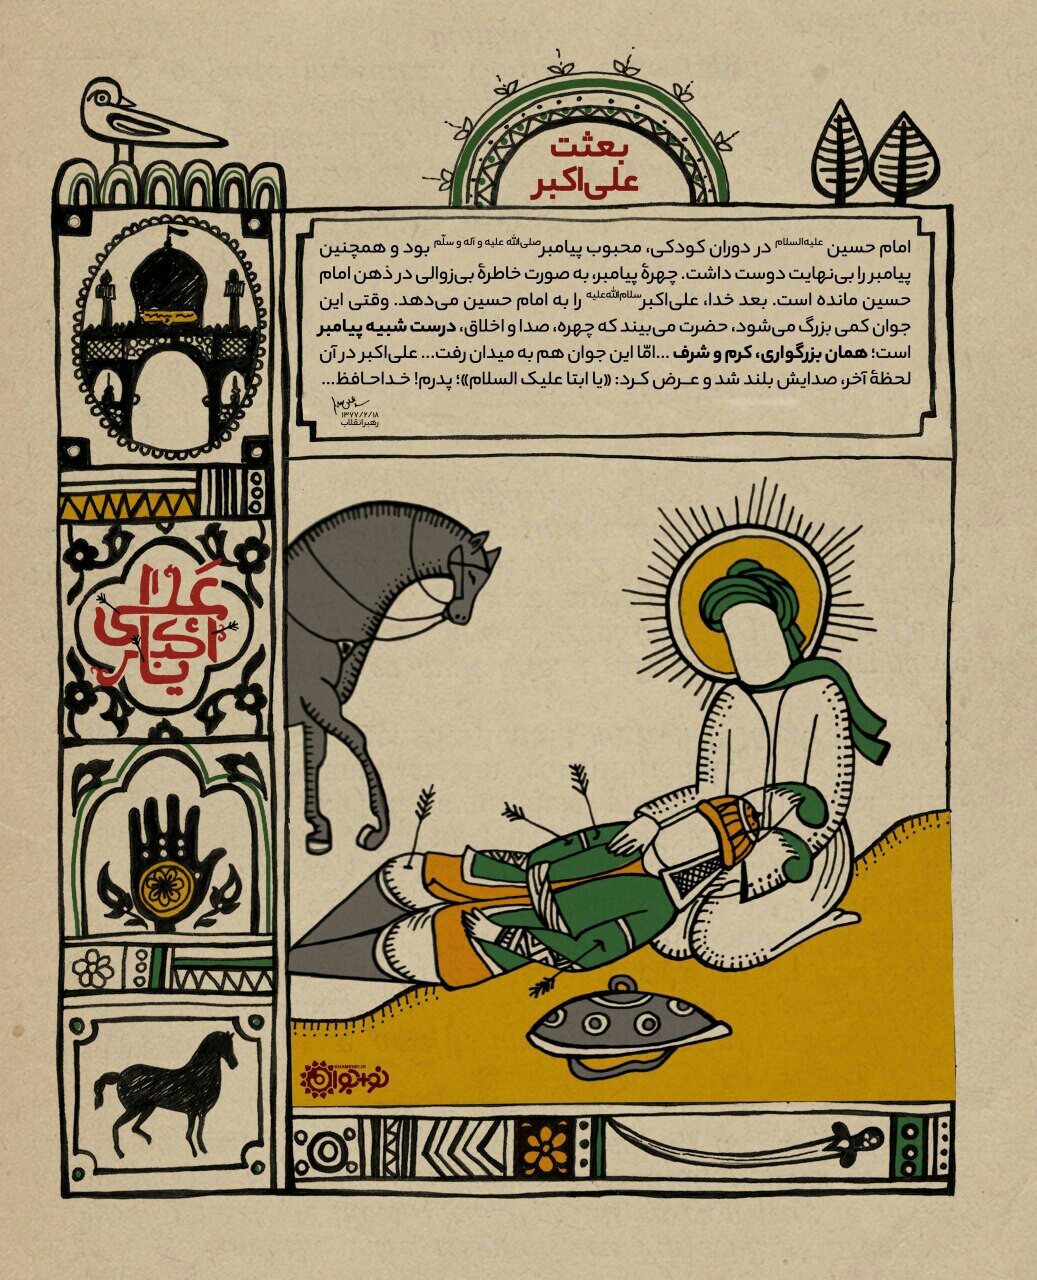 بعثت
علی‌اکبر
امام حسین علیه‌السلام در دوران کودکی، محبوب پیامبر صلی‌الله علیه و آله و سلّم بود و همچنین
پیامبر را بی‌نهایت دوست داشت. چهرهٔ پیامبر، به صورت خاطرهٔ بی‌زوالی در ذهن امام
حسین مانده است. بعد خدا، علی‌اکبر سلام‌الله‌علیه را به امام حسین می‌دهد. وقتی این
جوان کمی بزرگ می‌شود، حضرت می‌بیند که چهره، صدا و اخلاق، درست شبیه پیامبر
است؛ همان بزرگواری، کرم و شرف ...امّا این جوان هم به میدان رفت... علی‌اکبر در آن
لحظهٔ آخر، صدایش بلند شد و عرض کرد: «یا ابتا علیک السلام»؛ پدرم! خداحافظ...
۱۳۷۷/۲/۱۸
رهبر انقلاب
KHAMENEI.IR
نوجوان